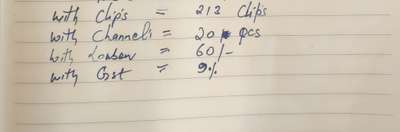 with Clips = 213 Clips
with Channels = 20 pcs
with = 60/-
with Gst = 9%